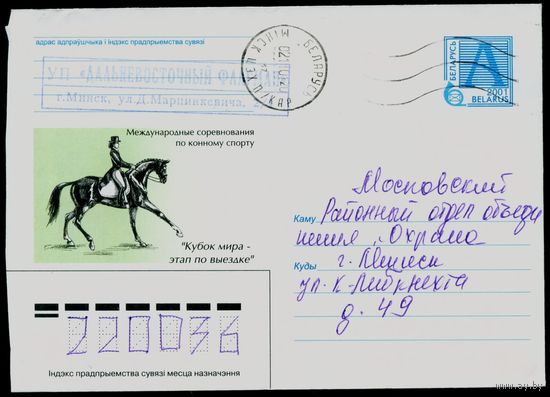 адрас адпраўшчыка і індэкс прадпрыемства сувязі
УП
г. Минск, ул. Д. Марцинкевича, 2
МІНСК ЦЭП ц/КАР
БЕЛАРУСЬ
БЕЛАРУСЬ
A
2001
BELARUS
Международные соревнования
по конному спорту
"Кубок мира -
этап по выездке"
Каму
Московский
Районный отдел объеди
нения „Охрана
Куды
г. Минск
ул. К-Либкнехта
д. 49
220036
Індэкс прадпрыемства сувязі месца назначэння
www.ay.by